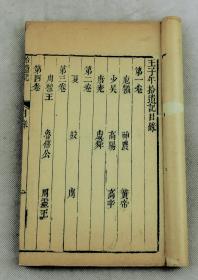 王子年拾遺記目錄
第一卷
庖犧 神農 黃帝
少昊 高陽 高辛
唐堯 虞舜
第二卷
夏 殷 周
第三卷
周穆王 魯僖公 周靈王
第四卷
拾遺記 目錄